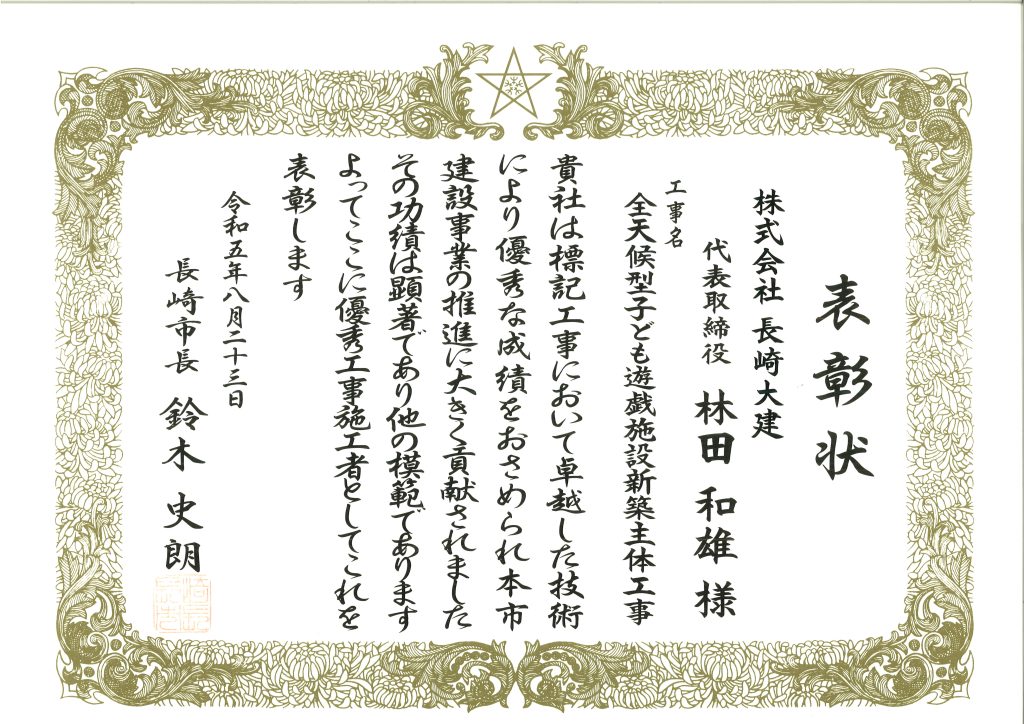 表彰状
株式会社 長崎大建
代表取締役 林田 和雄 様
工事名
全天候型子ども遊戯施設新築主体工事
貴社は標記工事において卓越した技術
により優秀な成績をおさめられ本市
建設事業の推進に大きく貢献されました
その功績は顕著であり他の模範であります
よってここに優秀工事施工者としてこれを
表彰します
令和五年八月二十三日
長崎市長 鈴木 史朗